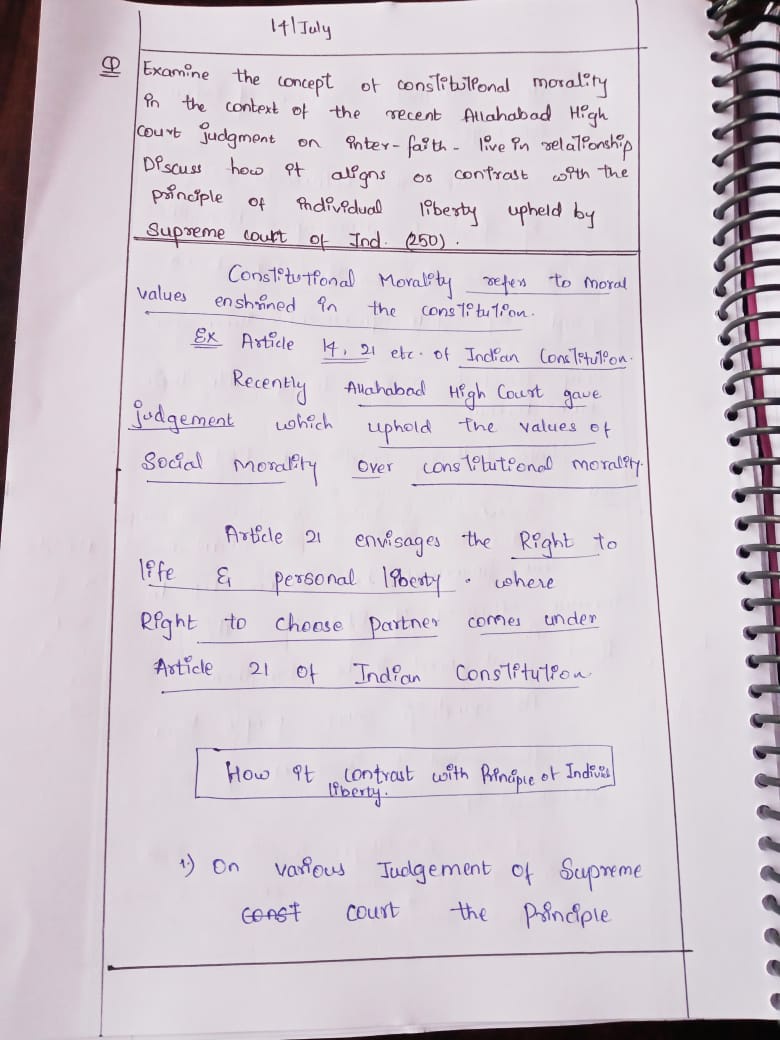 14/July
Q Examine the concept of constitutional morality
in the context of the recent Allahabad High
court judgment on inter-faith- live in relationship
Discuss how it aligns or contrast with the
principle of individual liberty upheld by
Supreme court of Ind. (250).
Constitutional Morality refers to moral
values enshrined in the constitution.
Ex Article 14, 21 etc. of Indian Constitution.
Recently Allahabad High Court gave
judgement which uphold the values of
Social morality over constitutional morality.
Article 21 envisages the Right to
life & personal liberty. where
Right to choose partner comes under
Article 21 of Indian Constitution
How it contrast with Principle of Individ
liberty.
1.) On various Judgement of Supreme
const court the Principle